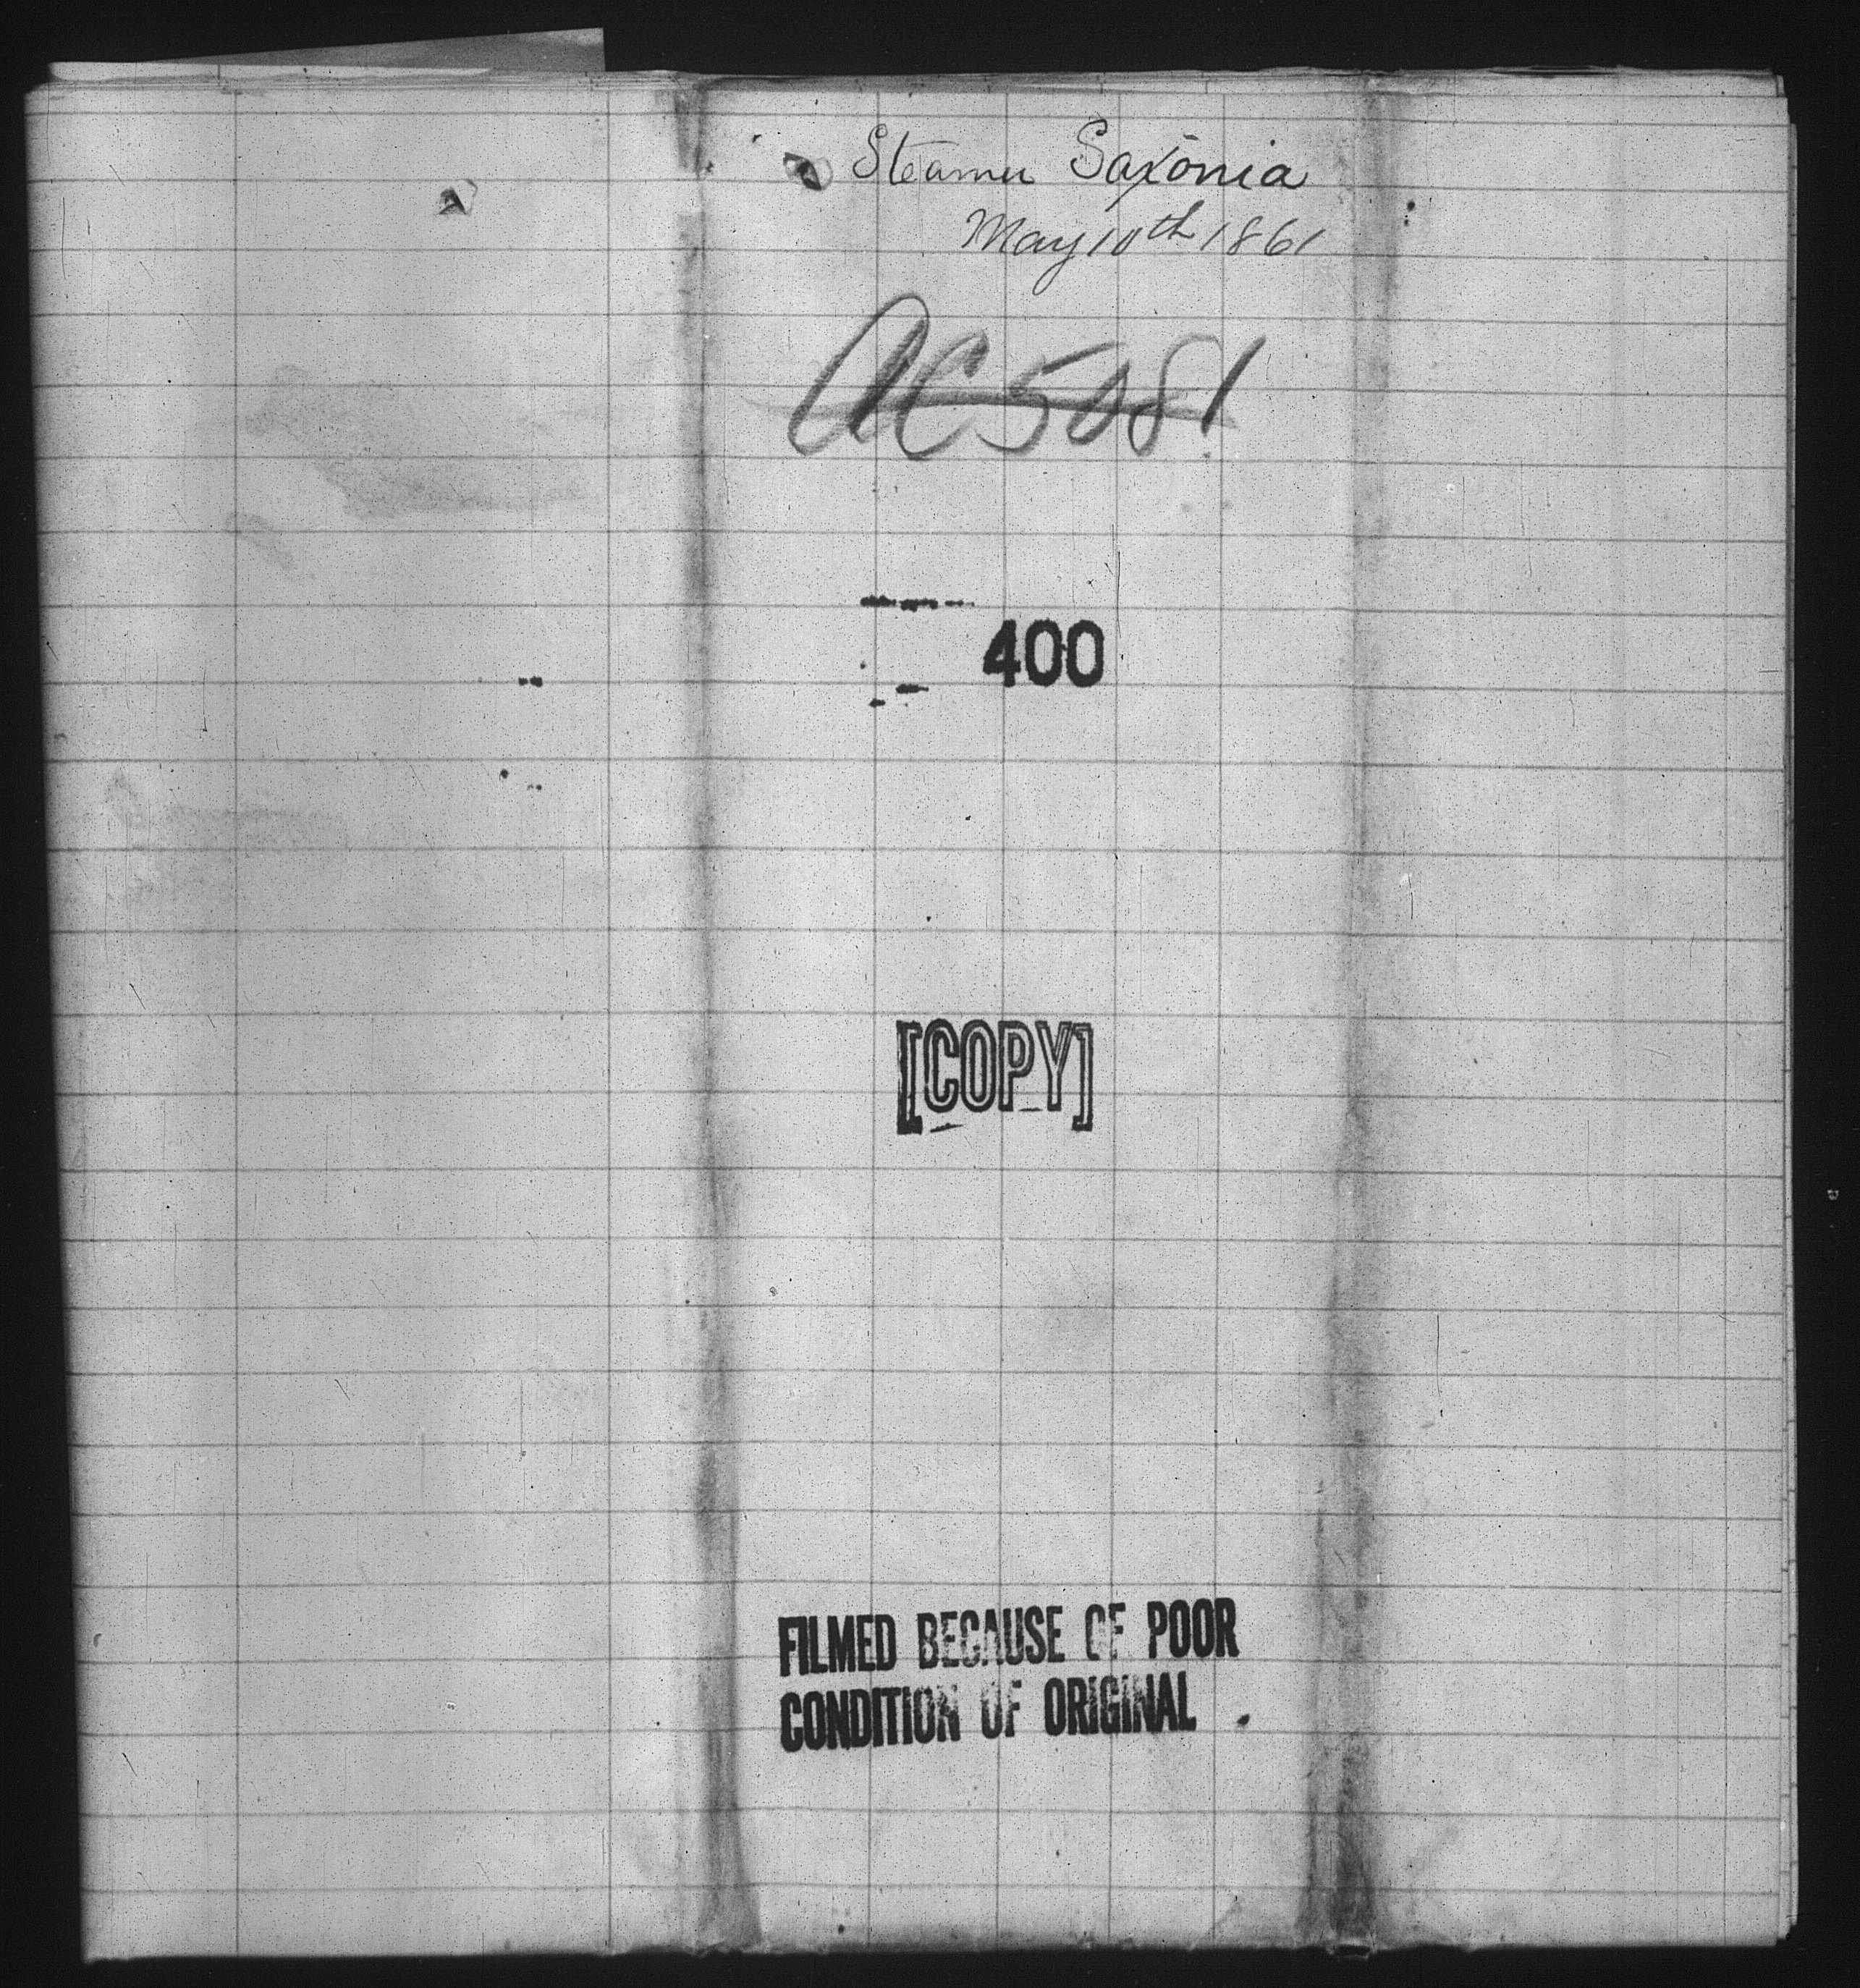 Steamer Saxonia
May 10th 1861
AC 5081
400
[COPY]
FILMED BECAUSE OF POOR
CONDITION OF ORIGINAL